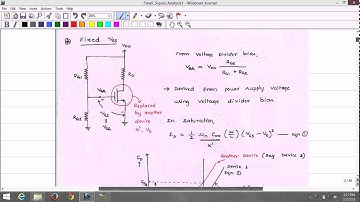 Small_Signal Analysis1 - Windows Journal
Fixed VGS
VDD
RG1
RD
RG2
VGS
Replaced by another device
K', Vt
From voltage divider bias,
VGG = VDD RG2 / RG1 + RG2
→ Derived from power supply voltage
using voltage divider bias
In Saturation,
ID = 1/2 μn Cox (W/L) (VGS - Vt)² — eqn ①
K'
ID
Another Device (say Device 2)
Device 1
eqn ①